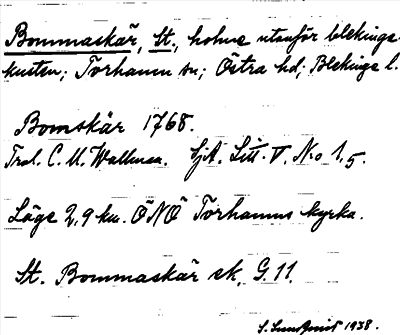 Bommaskär, St., holme utanför blekings-
kusten; Torhamn sn; Östra hd; Blekinge l.
Bomskär 1768.
Trol. C. U. Wallman. SjA. Litt. V. No 1,5.
Läge 2,9 km. ÖNÖ Torhamns kyrka.
St. Bommaskär ek. G. 11.
S. Lundqvist 1938.